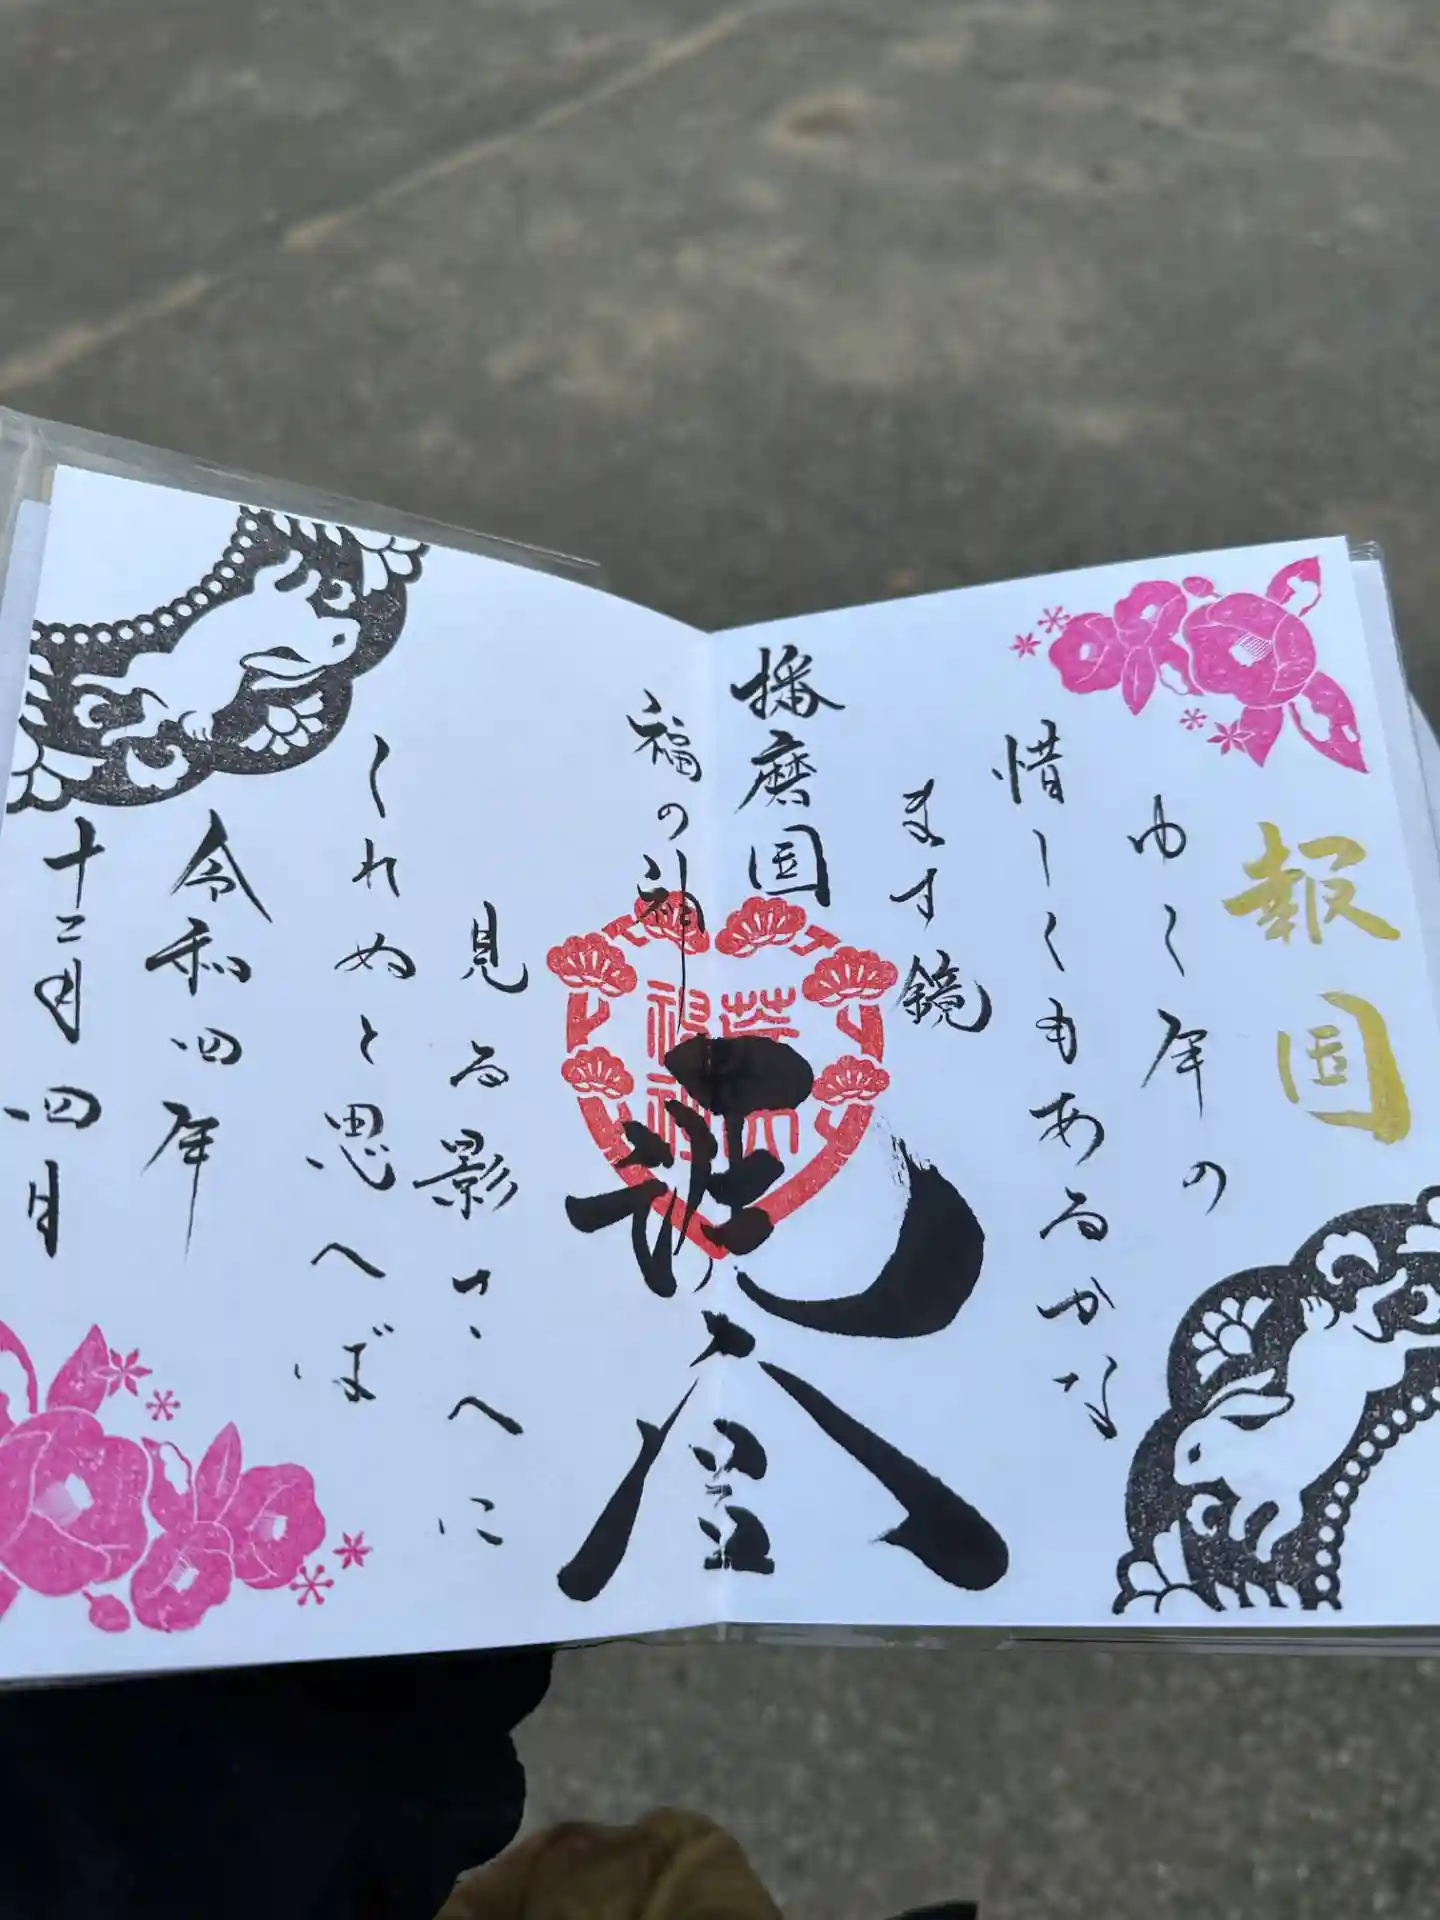 報国
ゆく年の
惜しくもあるかな
ます鏡
播磨国
福の神
見る影さへに
くれぬと思へば
令和四年
十二月四日